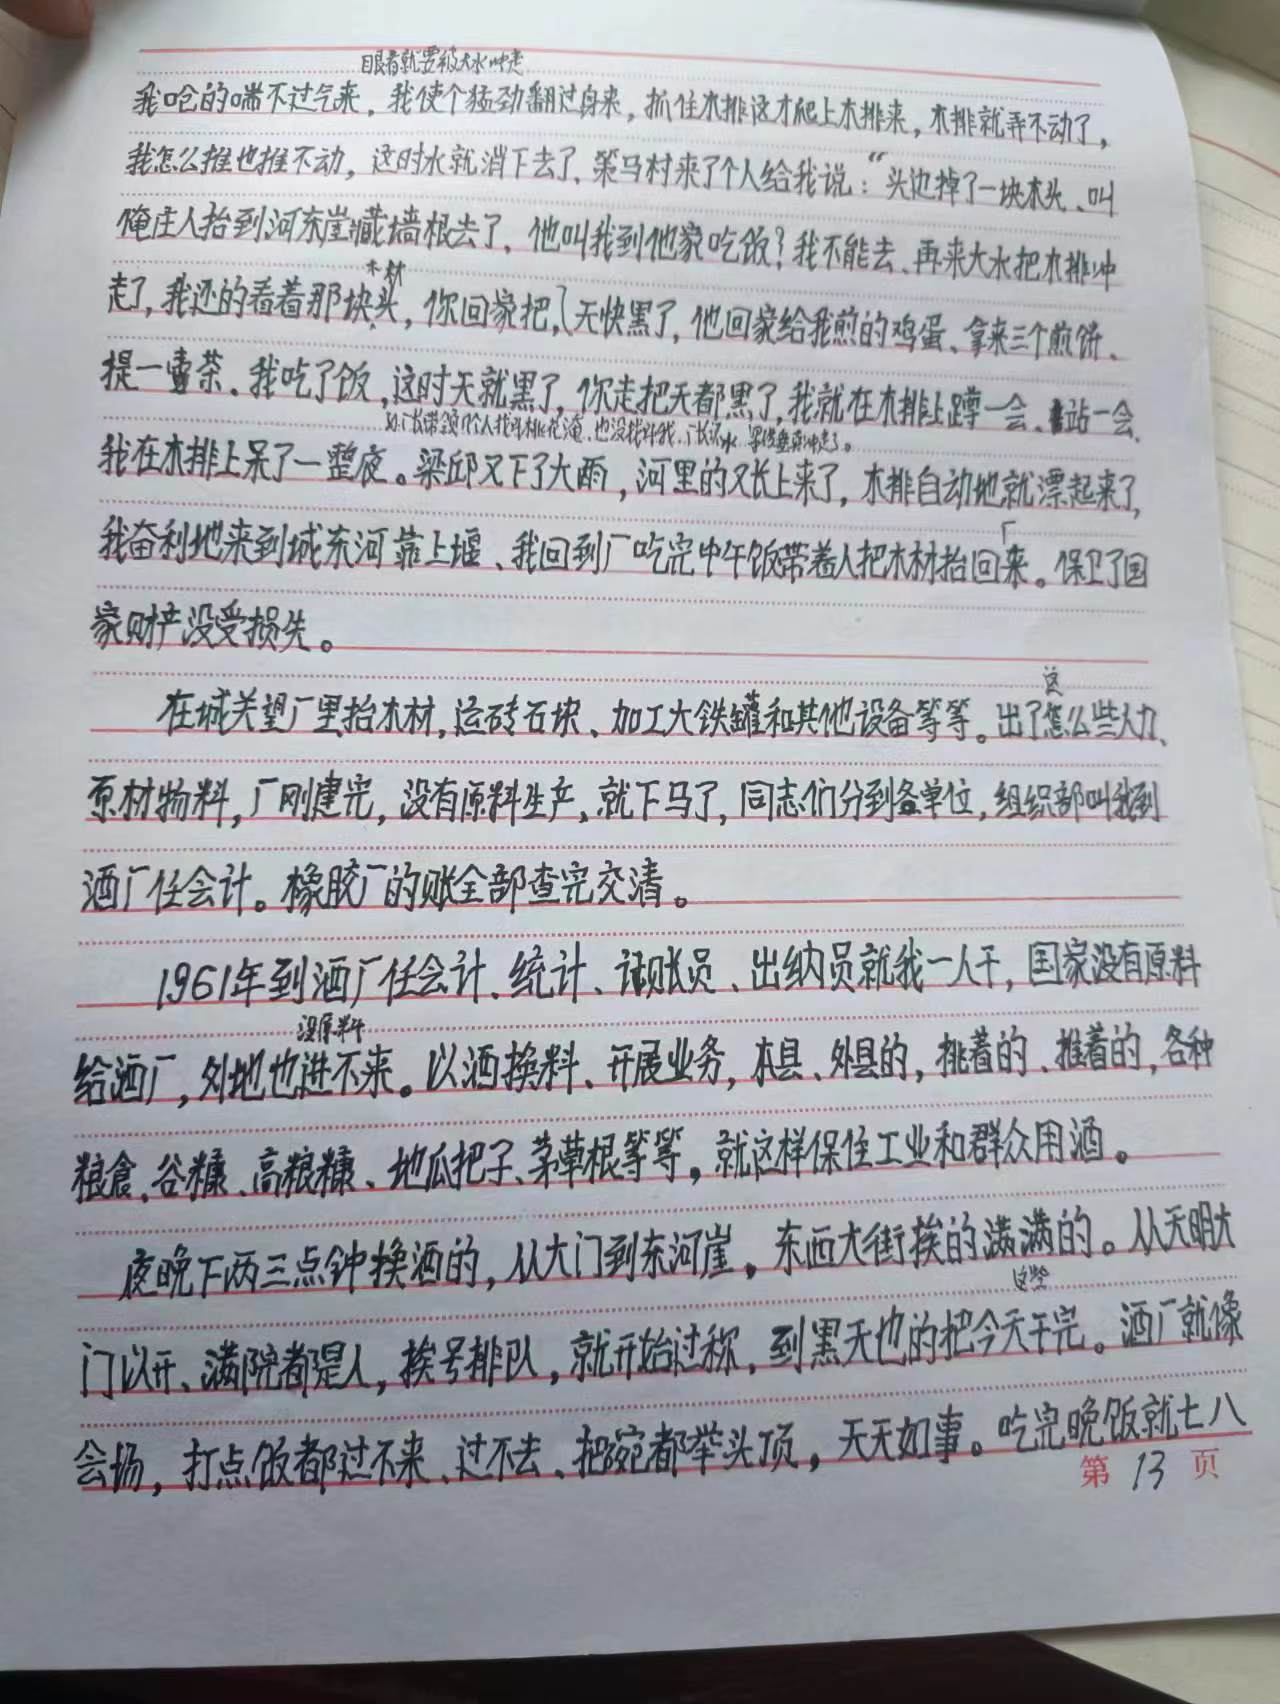 眼看就要被大水冲走
我呛的喘不过气来，我使个猛劲翻过身来，抓住木排这才爬上木排来，木排就弄不动了，
我怎么推也推不动，这时水就消下去了、策马村来了个人给我说：“头边掉了一块木头、叫
俺庄人抬到河东崖藏墙根去了，他叫我到他家吃饭？我不能去、再来大水把木排冲
木材
走了，我还的看着那块头，你回家把，天快黑了，他回家给我煎的鸡蛋、拿来三个煎饼、
提一壶茶、我吃了饭，这时天就黑了，你走把天都黑了，我就在木排上蹲一会、站一会、
厂长带领几个人找到桃花淹，也没找到我，厂长
冲走了。
我在木排上呆了一整夜。梁邱又下了大雨，河里的又长上来了，木排自动地就漂起来了，
我奋利地来到城东河靠上堰、我回到厂吃完中午饭带着人把木材抬回来。保卫了国
家财产没受损失。
这
在城关望厂里抬木材，运砖石块、加工大铁罐和其他设备等等。出了怎么些人力、
原材物料，厂刚建完，没有原料生产，就下马了，同志们分到各单位，组织部叫我到
酒厂任会计。橡胶厂的账全部查完交清。
1961年到酒厂任会计、统计、记账员、出纳员就我一人干，国家没有原料
没原料
给酒厂，外地也进不来。以酒换料、开展业务，本县、外县的，挑着的、推着的，各种
粮食、谷糠、高粮糠、地瓜把子、茅草根等等，就这样保住工业和群众用酒。
夜晚下两三点钟换酒的，从大门到东河崖，东西大街挨的满满的。从天明大
这些
门以开、满院都是人，挨号排队，就开始过称，到黑天也的把今天干完。酒厂就像
会场，打点饭都过不来、过不去、把碗都举头顶，天天如事。吃完晚饭就七八
第13页